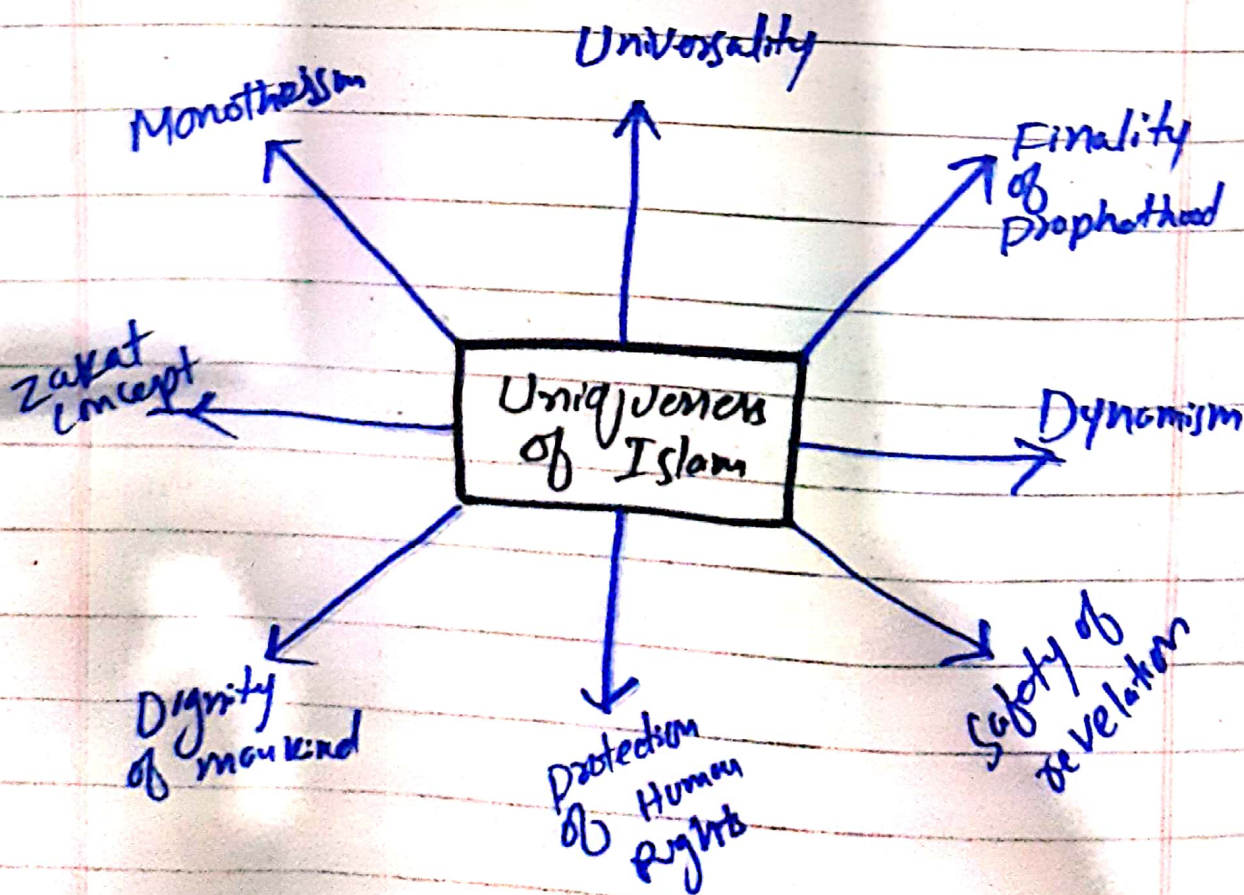 Universality
Monotheism
Finality
of
Prophethood
Zakat
concept
Uniqueness
of Islam
Dynamism
Dignity
of mankind
Protection
of Human
Rights
Safety of
revelation